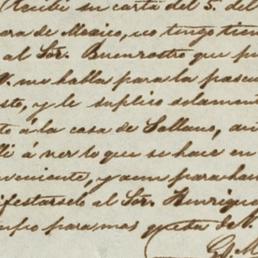 Recibí su carta del 5. del
ora de Mexico, no tengo tiem
al Sor. Buenrostro que pu
V. me habla para la pascu
sto, y le suplico solament
to á la casa de Sollano, au
lli á ver lo que se hace en
veniente, y aun para han
ifestarselo al Sor. Henriqu
mpo para mas queda de V.